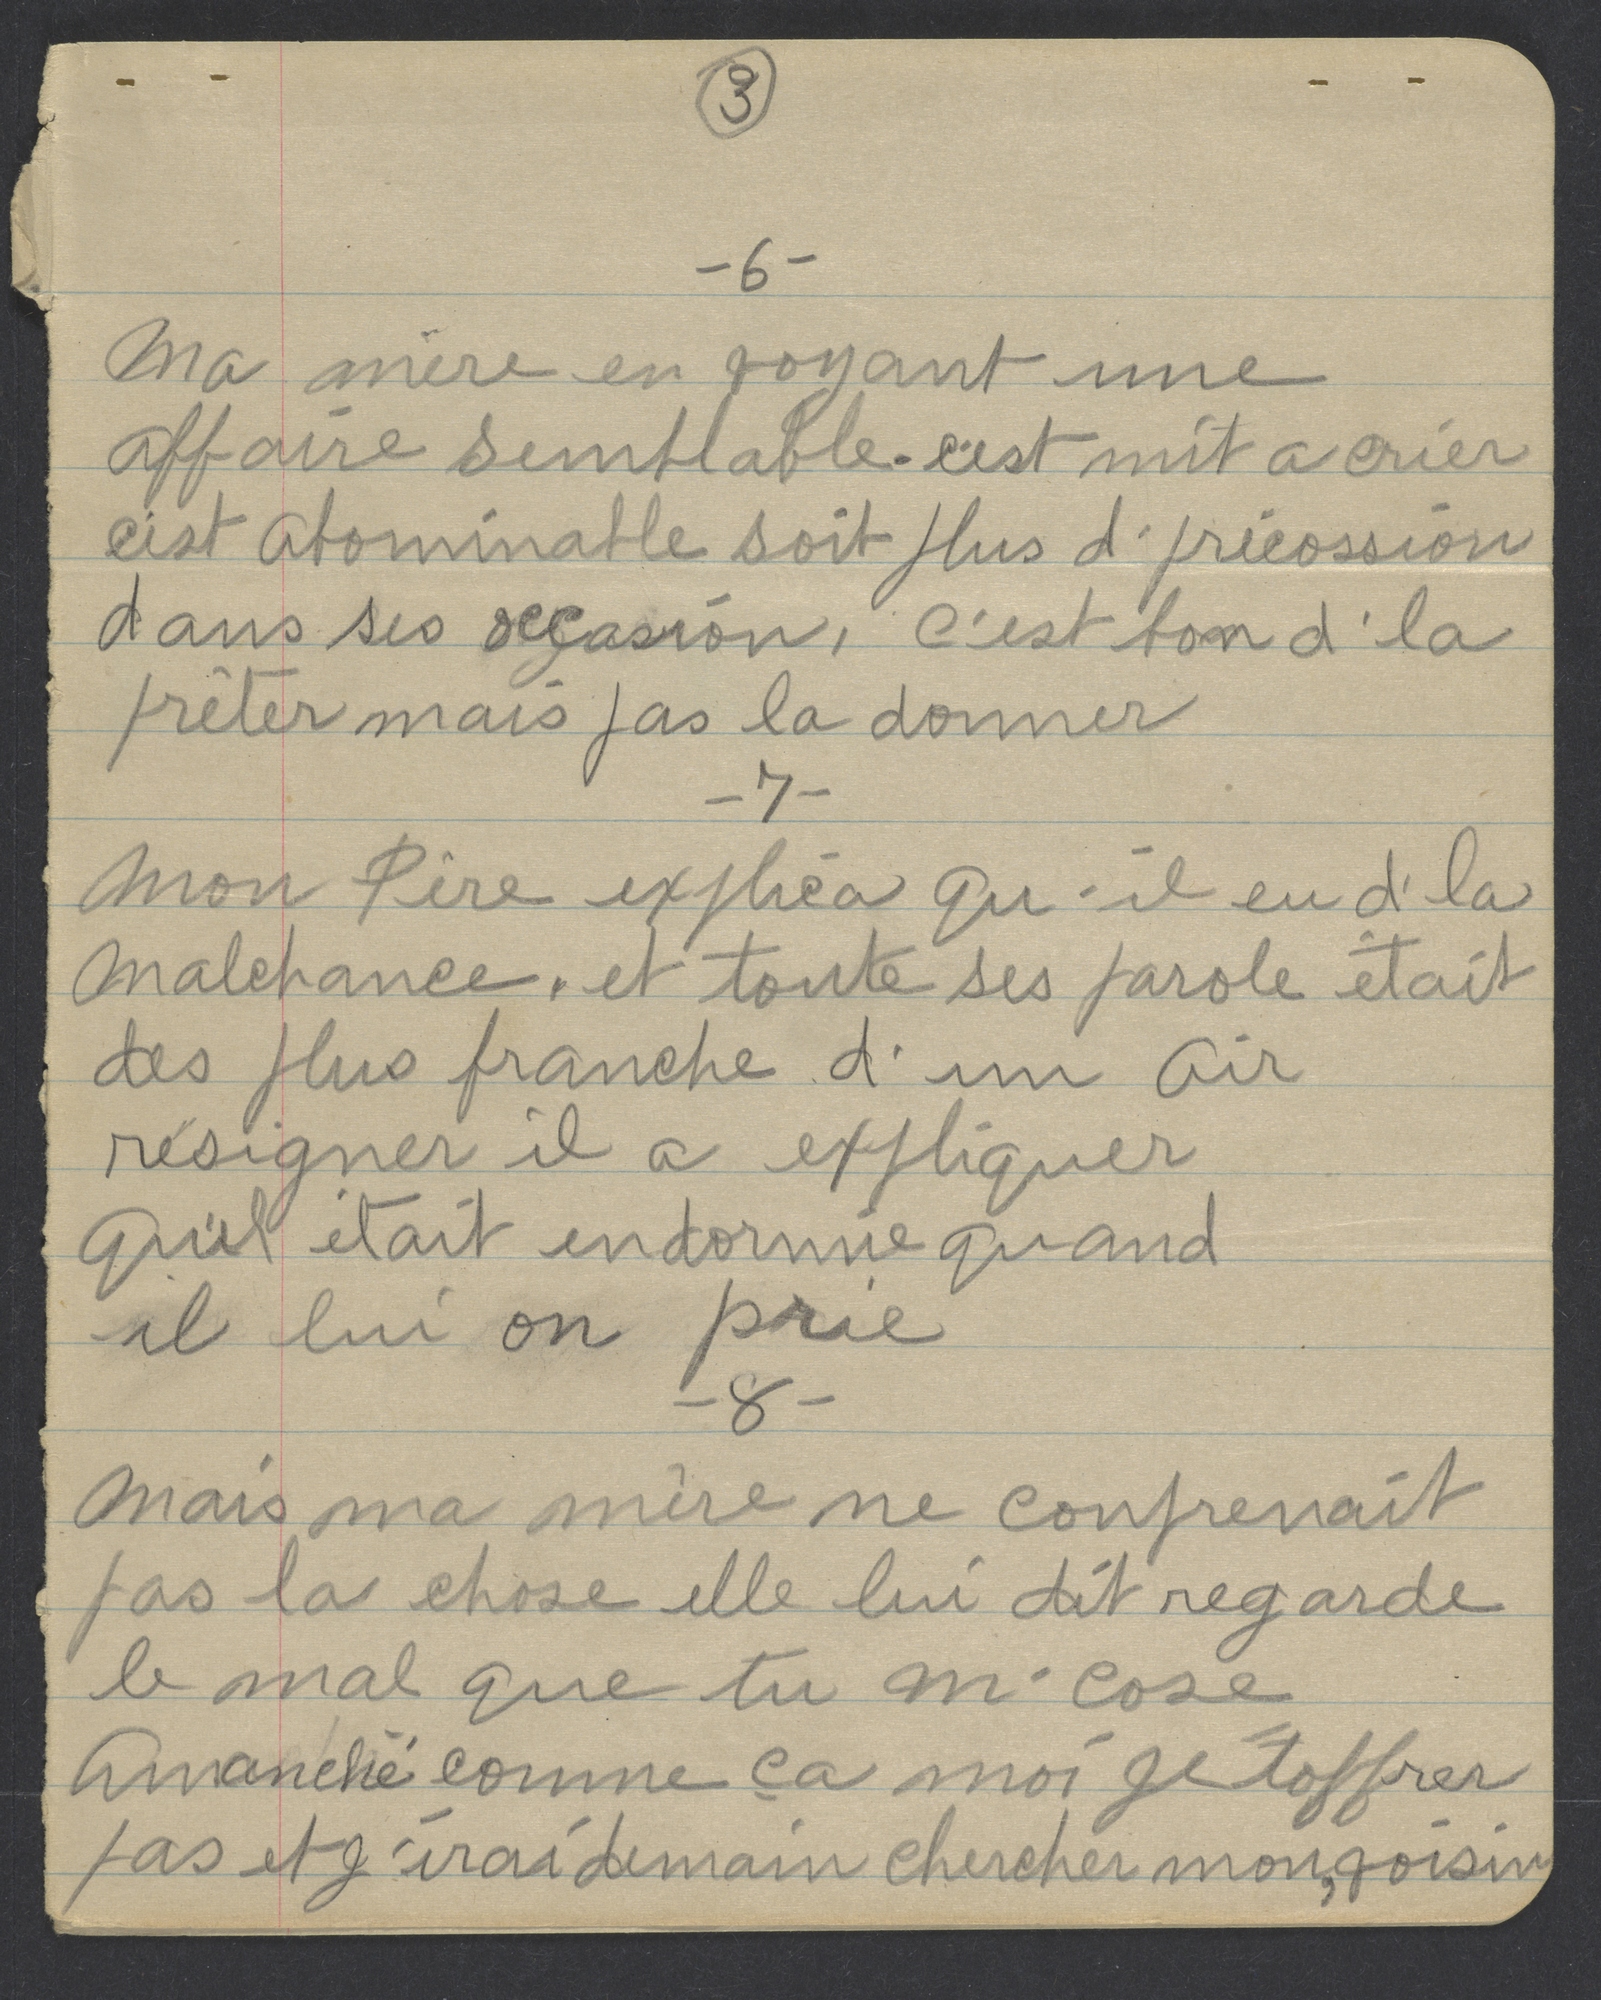 3
-6-
Ma mère en voyant une
affaire semblable. c'est mit a crier
c'est abominable soit plus d'précossion
dans ses occasion, c'est bon d'la
prêter mais pas la donner
-7-
Mon Père explica qu'il eu d'la
malchance. et toute ses parole était
des plus franche d'un air
résigner il a expliquer
qu'il était endormie quand
il lui on prie
-8-
Mais ma mère ne conprenait
pas la chose elle lui dit regarde
le mal que tu m'cose
Amanché comme ça moi je t'offrer
pas et j'irai demain chercher mon, voisin